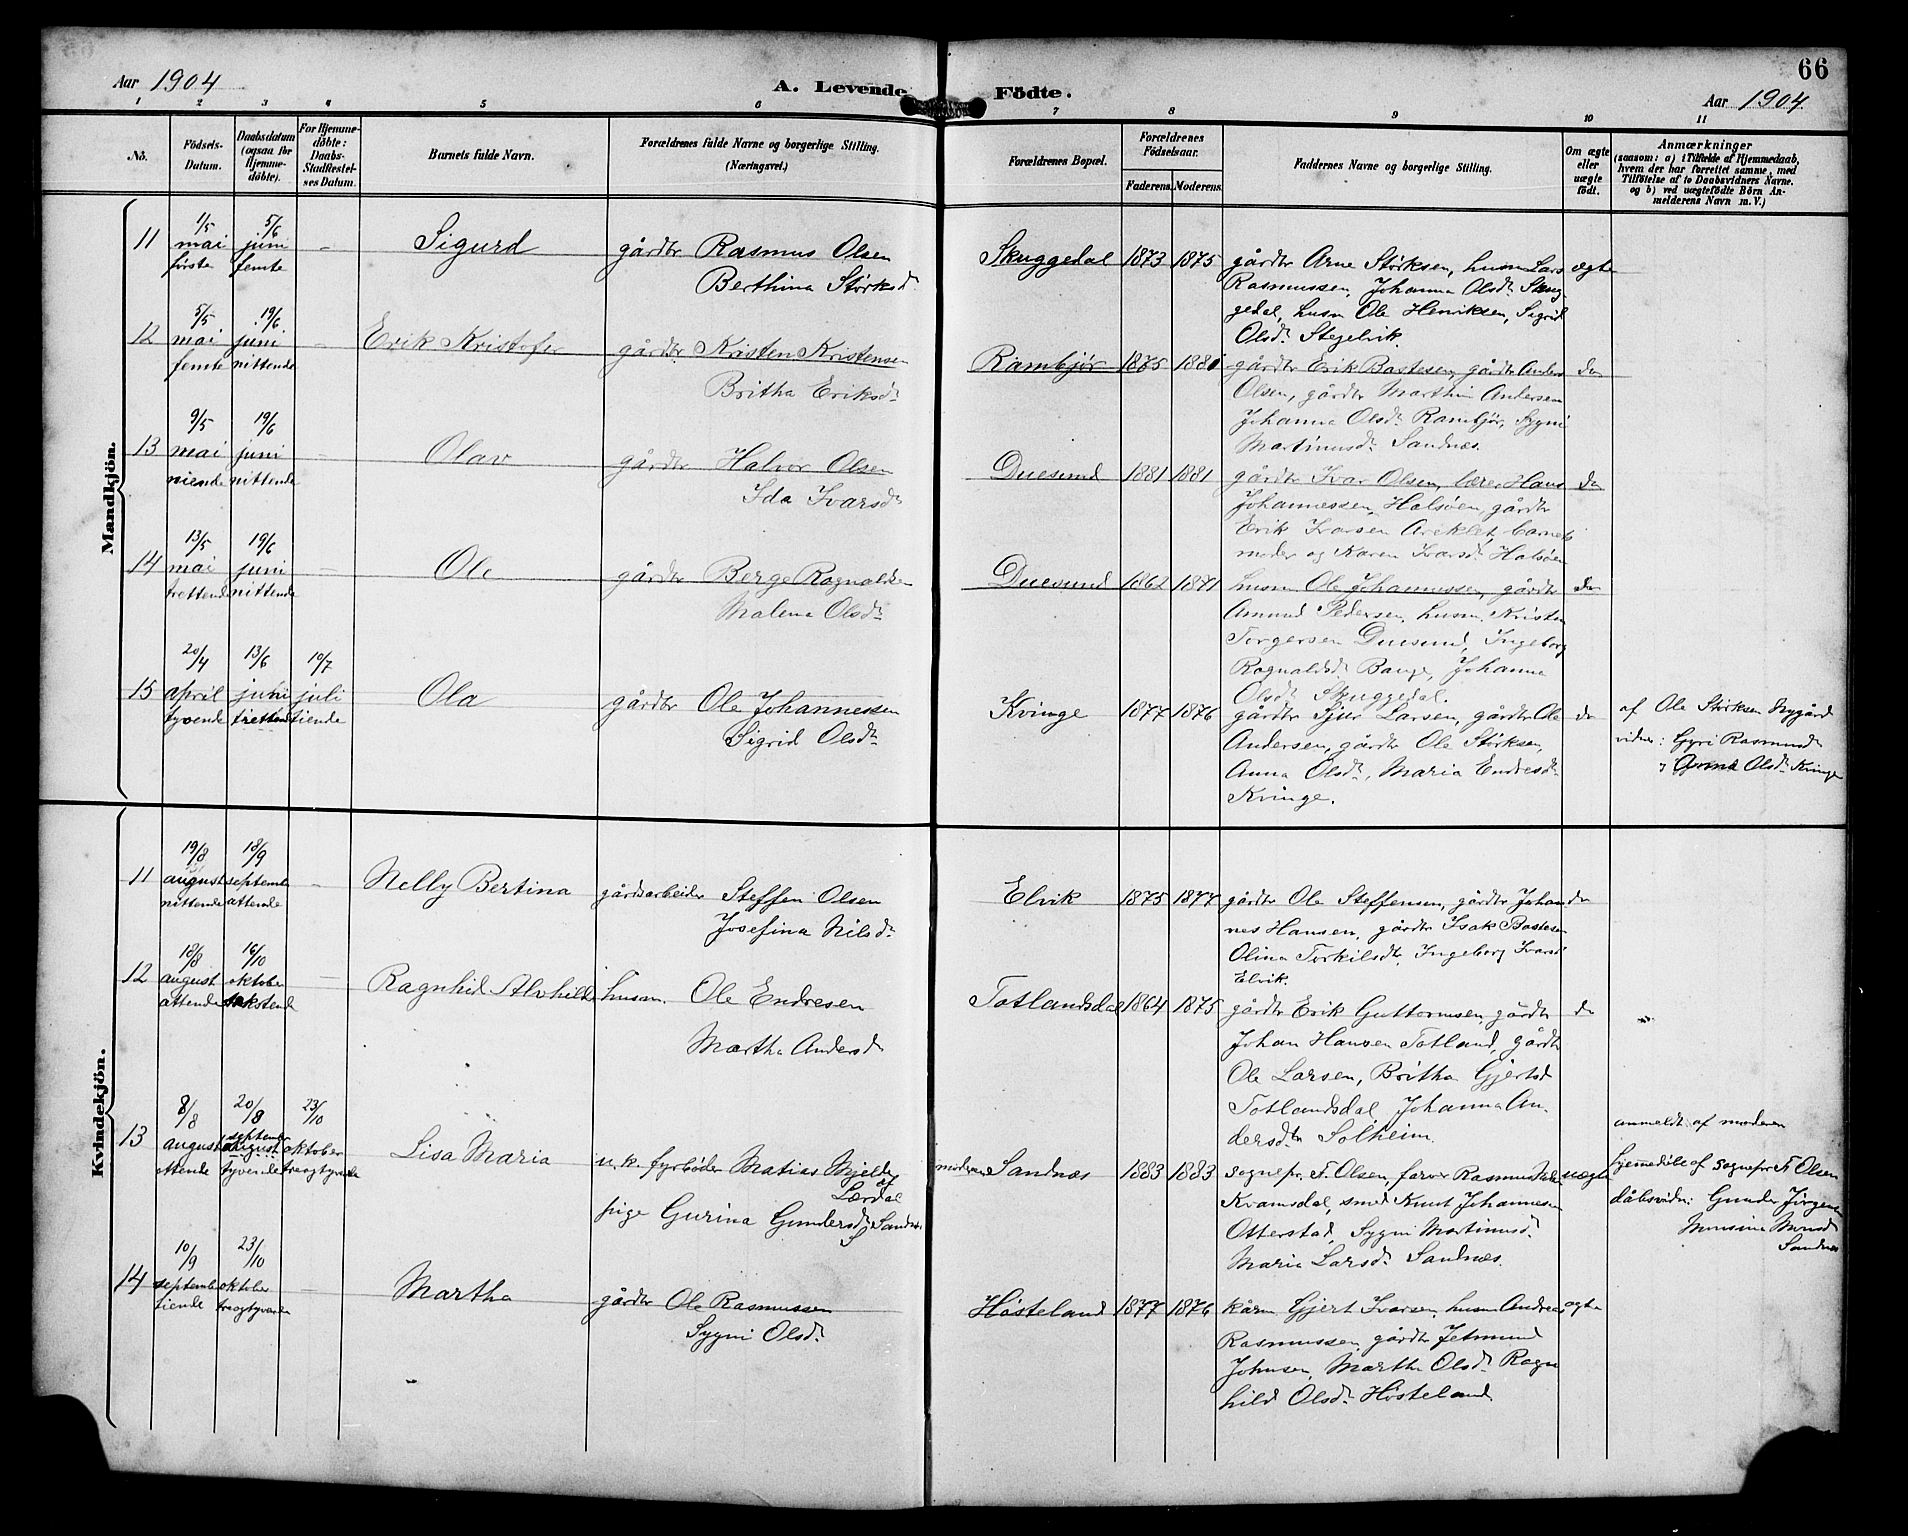 66
Aar 1904
A. Levende Fødte.
Aar 1904.
1 2 3 4 5 6 7 8 9 10 11
No.
Fødsels-Datum.
Daabsdatum (ogsaa for Hjemme-døbte).
For Hjemme-døbte: Daabs-Stadfæstel-ses Datum.
Barnets fulde Navn.
Forældrenes fulde Navne og borgerlige Stilling.
(Næringsvei.)
Forældrenes Bopæl.
Forældrenes Fødselsaar.
Faderens. Moderens.
Faddernes Navne og borgerlige Stilling.
Om ægte eller uægte født.
Anmærkninger
(saasom: a) i Tilfælde af Hjemmedaab,
hvem der har forrettet samme, med
Tilføielse af to Daabsvidners Navne.
og b) ved uægtefødte Børn An-
melderens Navn m. V.)
Mandkjøn.
11 1/5 mai første 5/6 juni femte - Sigurd gårdbr Rasmus Olsen
Berthina Størksdr
Skuggedal 1873 1875 gårdbr Arne Størksen, husm Lars ægte
Rasmussen, Johanna Olsdr Skug-
gedal, husm Ole Henriksen, Sigrid
Olsdr Stegelvik.
12 5/5 mai femte 19/6 juni nittende - Erik Kristofer gårdbr Kristen Kristensen
Britha Eriksdr
Rambjør 1875 1880 gårdbr Erik Bastesen, gårdbr Anders do
Olsen, gårdbr Marthin Andersen
Johanna Olsdr Rambjør, Sygni
Martinusdr Sandnæs.
13 9/5 mai niende 19/6 juni nittende - Olav gårdbr Halvor Olsen
Ida Ivarsdr
Duesund 1881 1881 gårdbr Ivar Olsen, lærer Hans do
Johannessen, Halsøen, gårdbr
Erik Ivarsen, barnets
moder og Karen Ivarsdr Halsøen
14 13/5 mai trettende 19/6 juni nittende - Ole gårdbr Berge Ragnaldsen
Malena Olsdr
Duesund 1862 1871 husm Ole Johannessen, gårdbr do
Amund Pedersen, husm. Kristen
Torgersen Duesund, Ingeborg
Ragnaldsdr Bauge, Johanna
Olsdr Skuggedal.
15 20/4 april tyvende 13/6 juni trettende 10/7 juli tiende Ola gårdbr Ole Johannessen
Sigrid Olsdr
Kvinge 1877 1876 gårdbr Sjur Larsen, gårdbr Ole do
Andersen, gårdbr Ole Størksen,
Anna Olsdr, Maria Endresdr
Kvinge.
af Ole Størksen Nygård
vidner: Gyri Rasmusdr
Anna Olsdr Kvinge
Kvindekjøn.
11 19/8 august nittende 18/9 septembr attende - Nelly Bertina gårdsarbeider Steffen Olsen
Josefina Nilsdr
Elvik 1875 1877 gårdbr Ole Steffensen, gårdbr Johan- do
nes Hansen, gårdbr Isak Bastesen
Olina Torkilsdr, Ingeborg Ivarsd
Elvik.
12 18/8 august attende 16/10 oktober sekstende - Ragnhild Alvhilde husm. Ole Endresen
Martha Andersdr
Totlandsdal 1864 1875 gårdbr Erik Guttormsen, gårdbr do
Johan Hansen Totland, gårdbr
Ole Larsen, Britha Gjertsd
Totlandsdal, Johanna An-
dersdtr Solheim.
13 8/8 august ottende 20/8 september august tyvende 23/10 oktober treogtyvende Lisa Maria u.k. fyrbøder Matias Mjelde
af Lærdal
pige Gurina Gundersdr, Sandnes
moderens Sandnæs 1883 1883 sognepr. F. Olsen, farver Rasmus uægte
Kvamsdal, smed Knut Johannesen
Otterstad, Sygni Martinusdr
Maria Larsdr Sandnæs.
anmeldt af moderen
hjemmedøbt af sognepr F. Olsen
dåbsvidn: Gunder Jørgensen
Monsina Monsdr
Sandnæs
14 10/9 september tiende 23/10 oktober treogtyvende - Martha gårdbr Ole Rasmussen
Sygni Olsdr
Høsteland 1877 1876 kårm Gjert Ivarsen, husm Andreas ægte
Rasmussen, gårdbr Jetmund
Johnsen, Martha Olsdr Ragn-
hild Olsdr Høsteland.